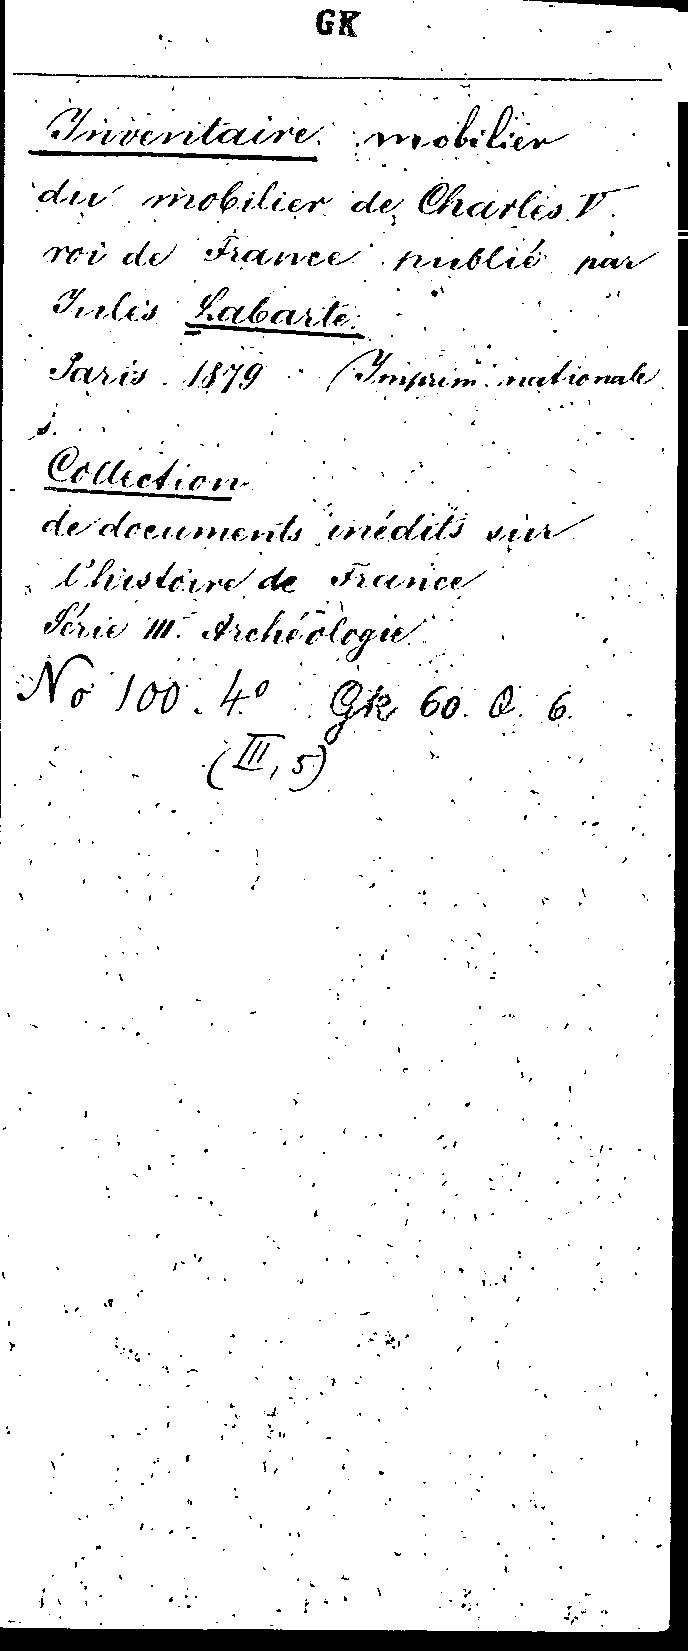 GK
Inventaire mobilier
du mobilier de Charles V.
roi de France publié par
Jules Labarte.
Paris 1879 (Imprim. nationale
s.
Collection
de documents inédits sur
l'histoire de France
Série III. Archéologie
No 100. 4° Gk 60. Q. 6.
(III, 5)